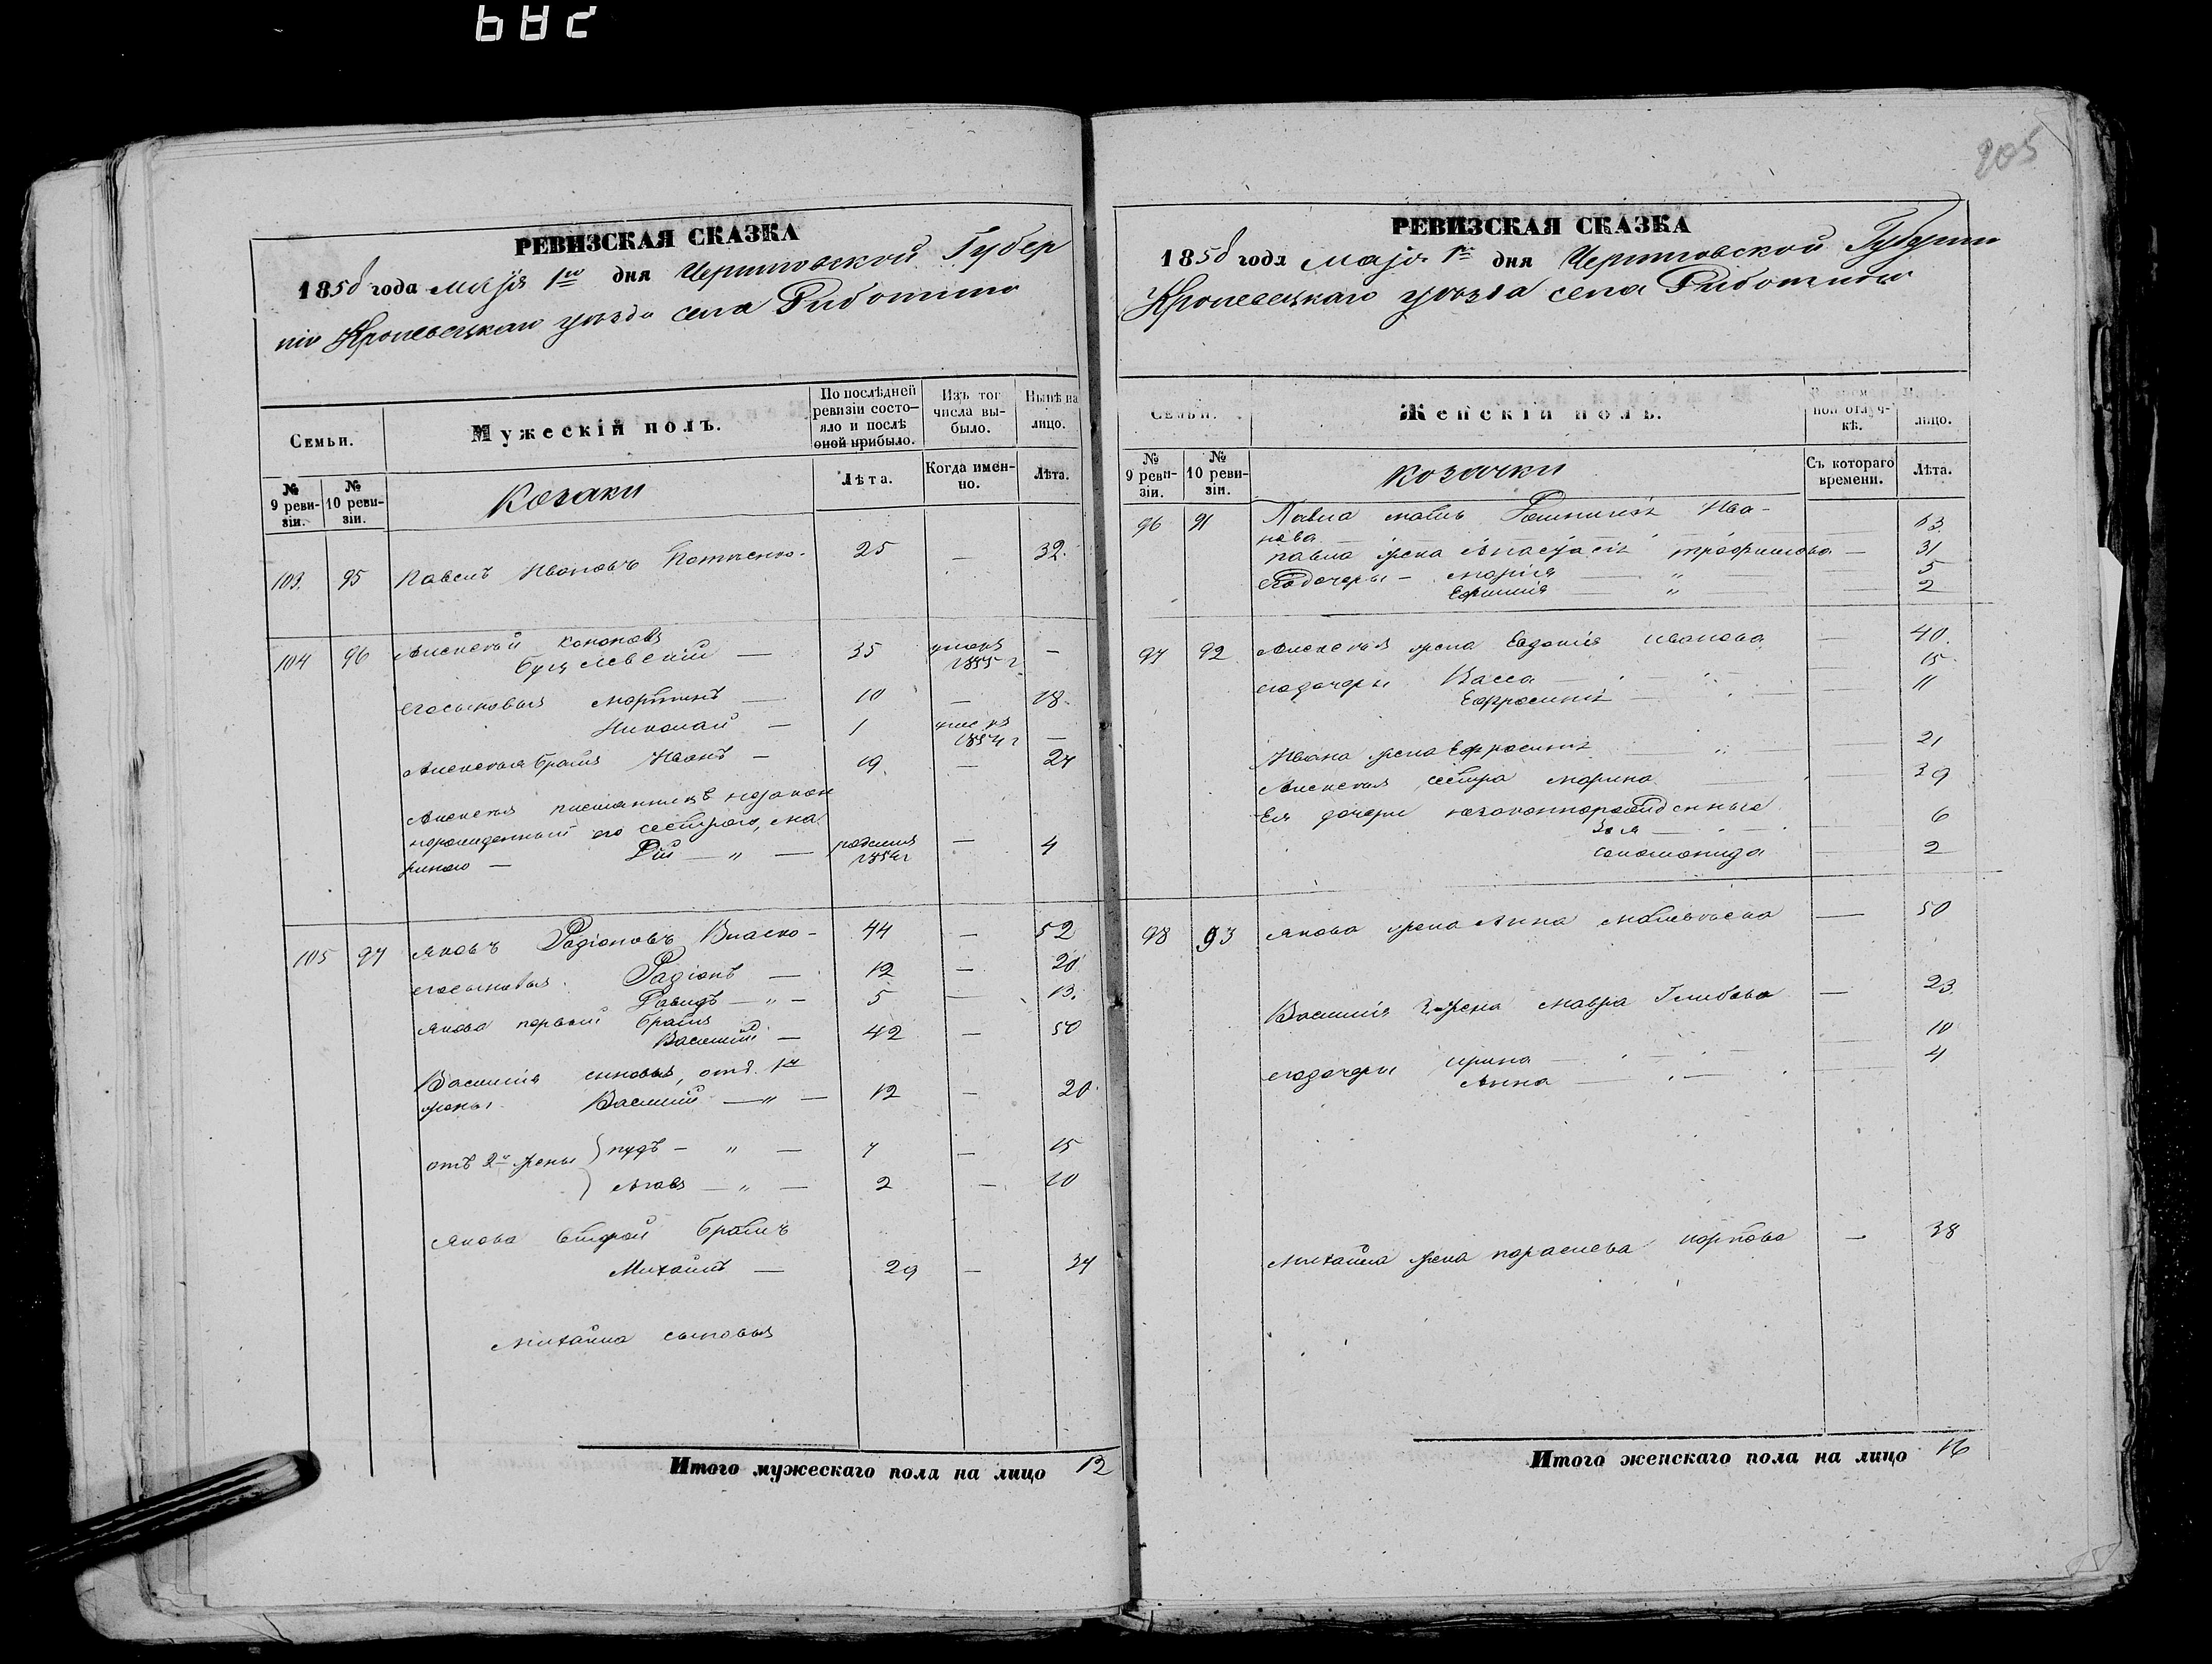 682
РЕВИЗСКАЯ СКАЗКА
1858 года маія 1го дня Черниговской Губер
ніи Кролевецкаго уѣзда села Риботина
Семьи.
Мужескій полъ.
По послѣдней ревизіи состо-
яло и послѣ
оной прибыло.
Изъ того
числа вы-
было.
Нынѣ на
лицо.
№ 9 реви-
зіи.
№ 10 реви-
зіи.
Козаки
Лѣта.
Когда имен-
но.
Лѣта.
103. 95 Павелъ Ивановъ 25 — 32.
104 96 Алексѣй Кононовъ
35 умеръ 1855 г —
егосыновья Мартинъ — 10 — 18.
Николай — 1 умеръ 1854 г —
Алексѣя братъ Иванъ — 19 — 27
Алексѣя племянникъ незакон
норожденный его сестрою, Ма
риною — — " — родился 1854 г — 4
105 97 Яковъ Радіоновъ Власко- 44 — 52
егосыновья Радіонъ — 12 — 20
Давидъ — " — 5 — 13.
Якова первый братъ
Василий — 42 — 50
Василія сыновья, отъ 1й
жены Василий — " — 12 — 20
отъ 2й жены Пудъ — " — 7 — 15
Яковъ — " — 2 — 10
Якова второй братъ
Михаилъ — 29 — 37
Михаила сыновья
Итого мужескаго пола на лицо 12
205
РЕВИЗСКАЯ СКАЗКА
1858 года Маія 1го дня Черниговской Губерніи
Кролевецкаго уѣзда села Риботина
Семьи.
Женскій полъ.
ной отлуч-
кѣ.
лицо.
№ 9 реви-
зіи.
№ 10 реви-
зіи.
козачки
Съ котораго
времени.
Лѣта.
96 91 Павла мать Ива-
нова — 63.
Павла жена Анастасія Трофимова — 31
егодочеры — Марія — " — 5
Ефимія — " — 2
97 92 Алексѣя жена Евдокія Иванова — 40.
егодочеры Васса — 15.
Ефросинія — 11
Ивана жена Ефросинія " — 21
Алексѣя сестра Марина — 39
Ея дочери незаконнорожденныя
Зоя — 6
Соломонида — 2
98 93 Якова жена Анна Матвѣева — 50
Василія 2я жена Мавра Глибова — 23.
егодочеры Ирина — 10
Анна — 4
Михаила жена Параскева Карпова — 38
Итого женскаго пола на лицо 16